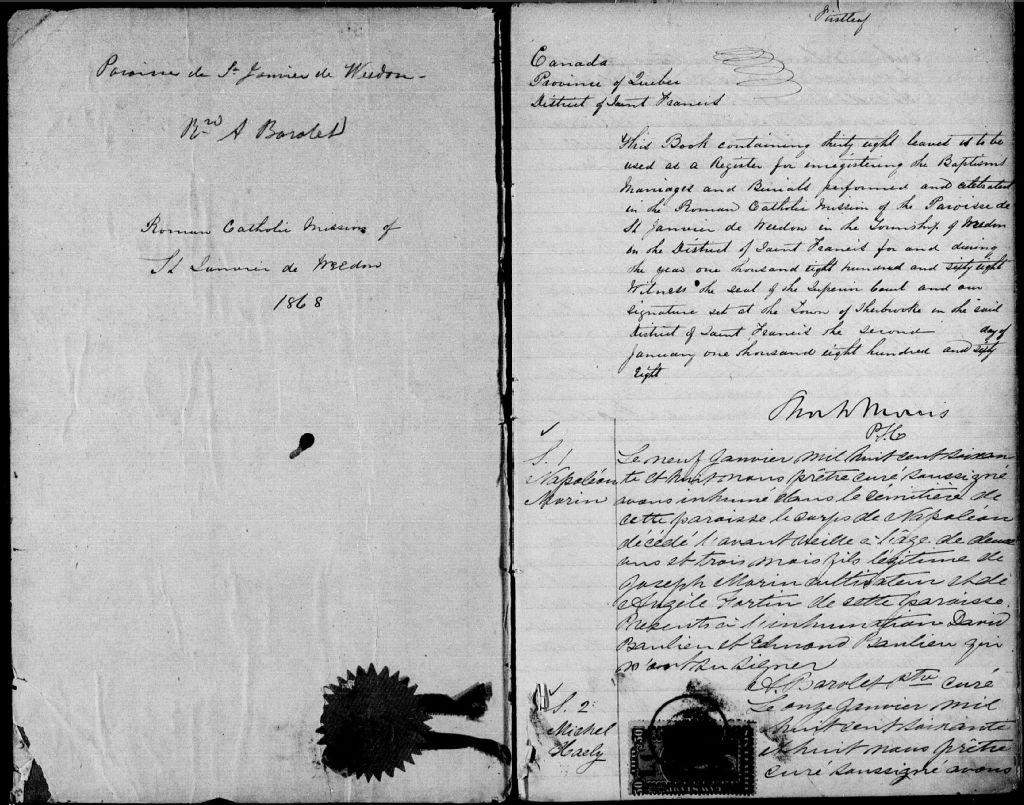 Paroisse de St Janvier de Weedon -
Rev A Barolet
Roman Catholic Mission of
St Janvier de Weedon
1868
First leaf
Canada
Province of Quebec
District of Saint Francis
This Book containing thirty eight leaves is to be
used as a Register for enregistering the Baptisms
Marriages and Burials performed and celebrated
in the Roman Catholic Mission of the Paroisse de
St Janvier de Weedon in the Township of Weedon
in the District of Saint Francis for and during
the year one thousand eight hundred and sixty eight
Witness the seal of the Superior Court and our
signature set at the Town of Sherbrooke in the said
district of Saint Francis the second day of
January one thousand eight hundred and sixty
Eight
Morris
S. 1
Napoléon
Morin
Le neuf Janvier mil huit cent soixan
te et huit nous prêtre curé soussigné
avons inhumé dans le cimitière de
cette paroisse le corps de Napoléon
décédé l'avant veille à l'âge de deux
ans et trois mois fils légitime de
Joseph Morin cultivateur et de
Angèle Fortin de cette paroisse.
Présents à l'inhumation David
Baulieu et Edmond Baulieu qui
n'ont su signer
A. Barolet Ptre curé
S. 2.
Michel
Haely
Le onze Janvier mil
huit cent soixante
et huit nous prêtre
curé soussigné avons